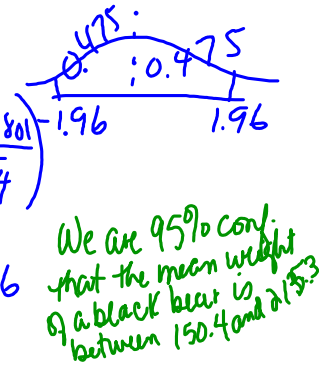 0.475 0.475
-1.96 1.96
801
4
6
We are 95% conf.
that the mean weight
of a black bear is
between 150.4 and 215.3